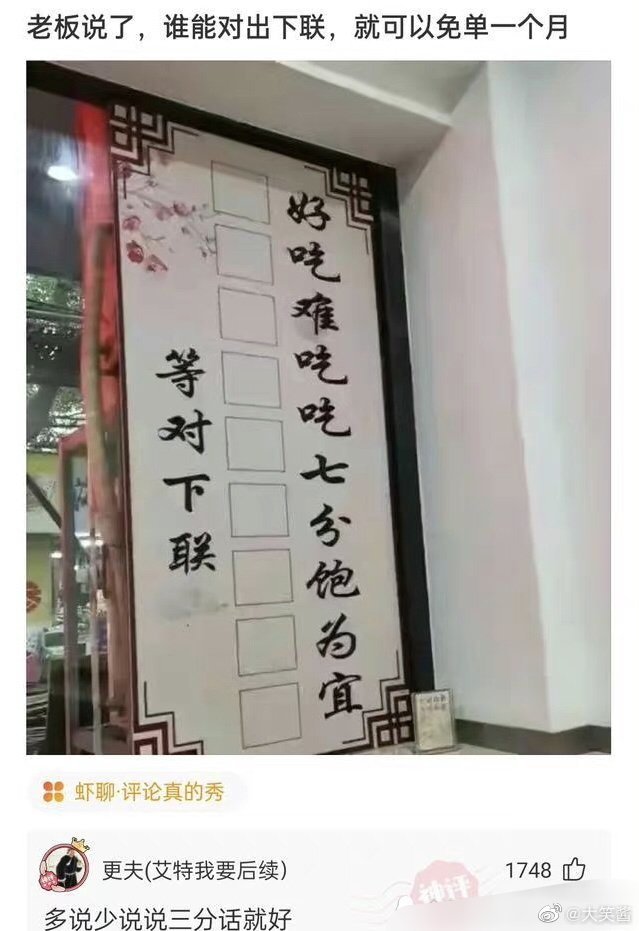 老板说了，谁能对出下联，就可以免单一个月
好吃难吃吃七分饱为宜
等对下联
虾聊·评论真的秀
更夫(艾特我要后续)
1748
神评
多说少说说三分话就好
@大笑酱